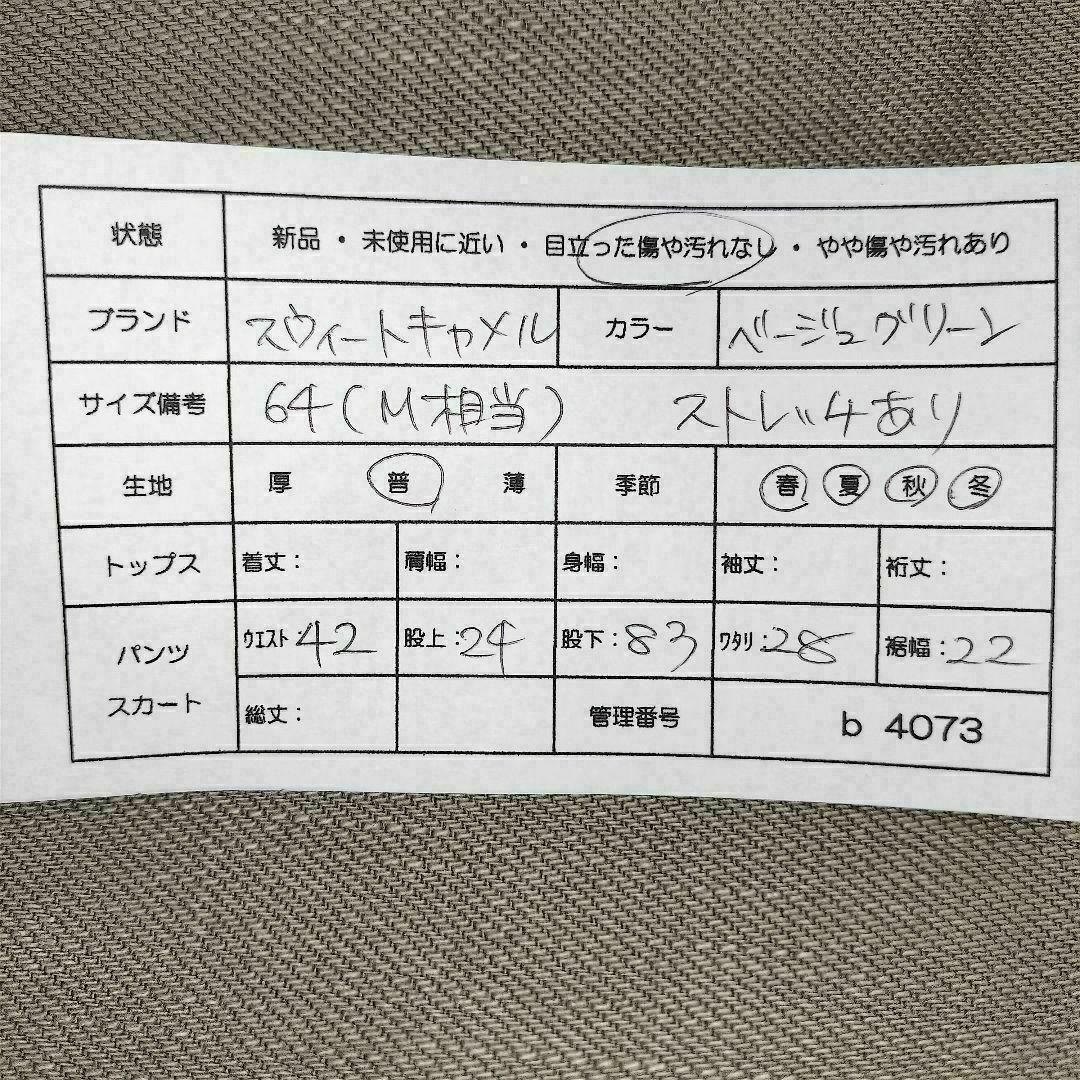 状態 新品 ・ 未使用に近い ・ 目立った傷や汚れなし ・ やや傷や汚れあり
ブランド スウィートキャメル カラー ベージュグリーン
サイズ備考 64(M相当) ストレッチあり
生地 厚 普 薄 季節 春 夏 秋 冬
トップス 着丈: 肩幅: 身幅: 袖丈: 裄丈:
パンツ ウエスト:42 股上:24 股下:83 ワタリ:28 裾幅:22
スカート 総丈: 管理番号 b 4073